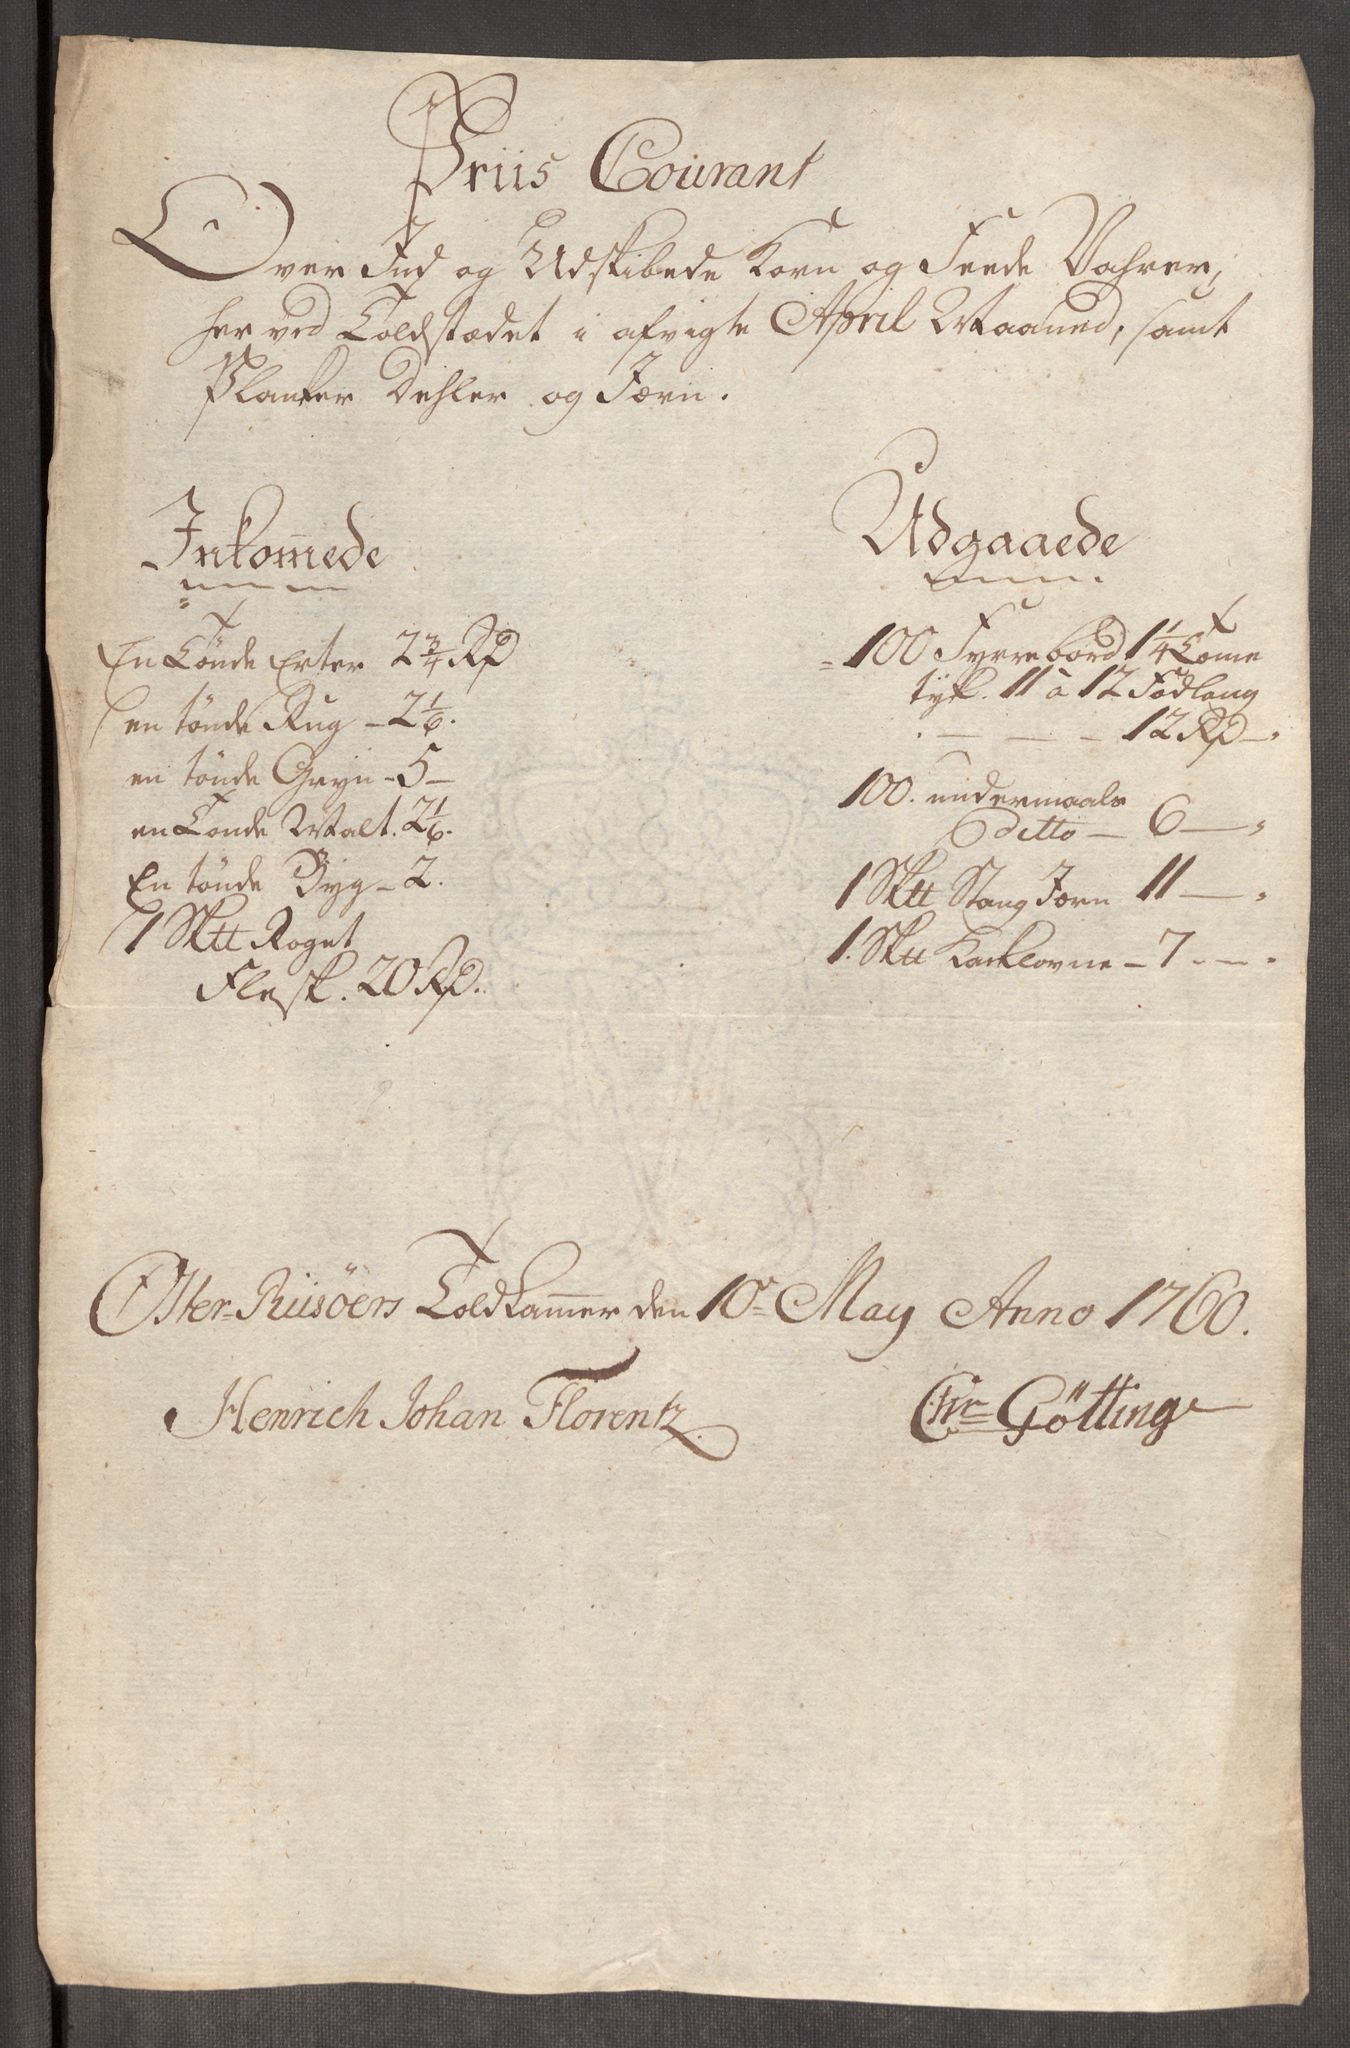 Priis Courant
Over Ind og Udskibede Korn og Feede Vahrer,
her ved Toldstædet i afvigte April Maaned, samt
Planker Dehler og Jærn.
Inkomede
En Tønde Erter 2 3/4 Rd
en tønde Rug - 2 1/6.
en tønde Gryn - 5 -
en Tønde Malt. 2 1/6.
En tønde Byg - 2.
1 Sktt Røget
Flesk. 20 Rd.
Udgaaede
100 Fyrre bord 1 1/4 Tome
tyk. 11 à 12 Fod lang
12 Rd
100. undermaals
ditto - 6 -
1 Sktt Stang Jærn 11 -
1. Sktt Kackelovne - 7 - -
Øster-Riisøers Toldkammer den 10de May Anno 1760.
Henrich Johan Florentz
Chr Götting